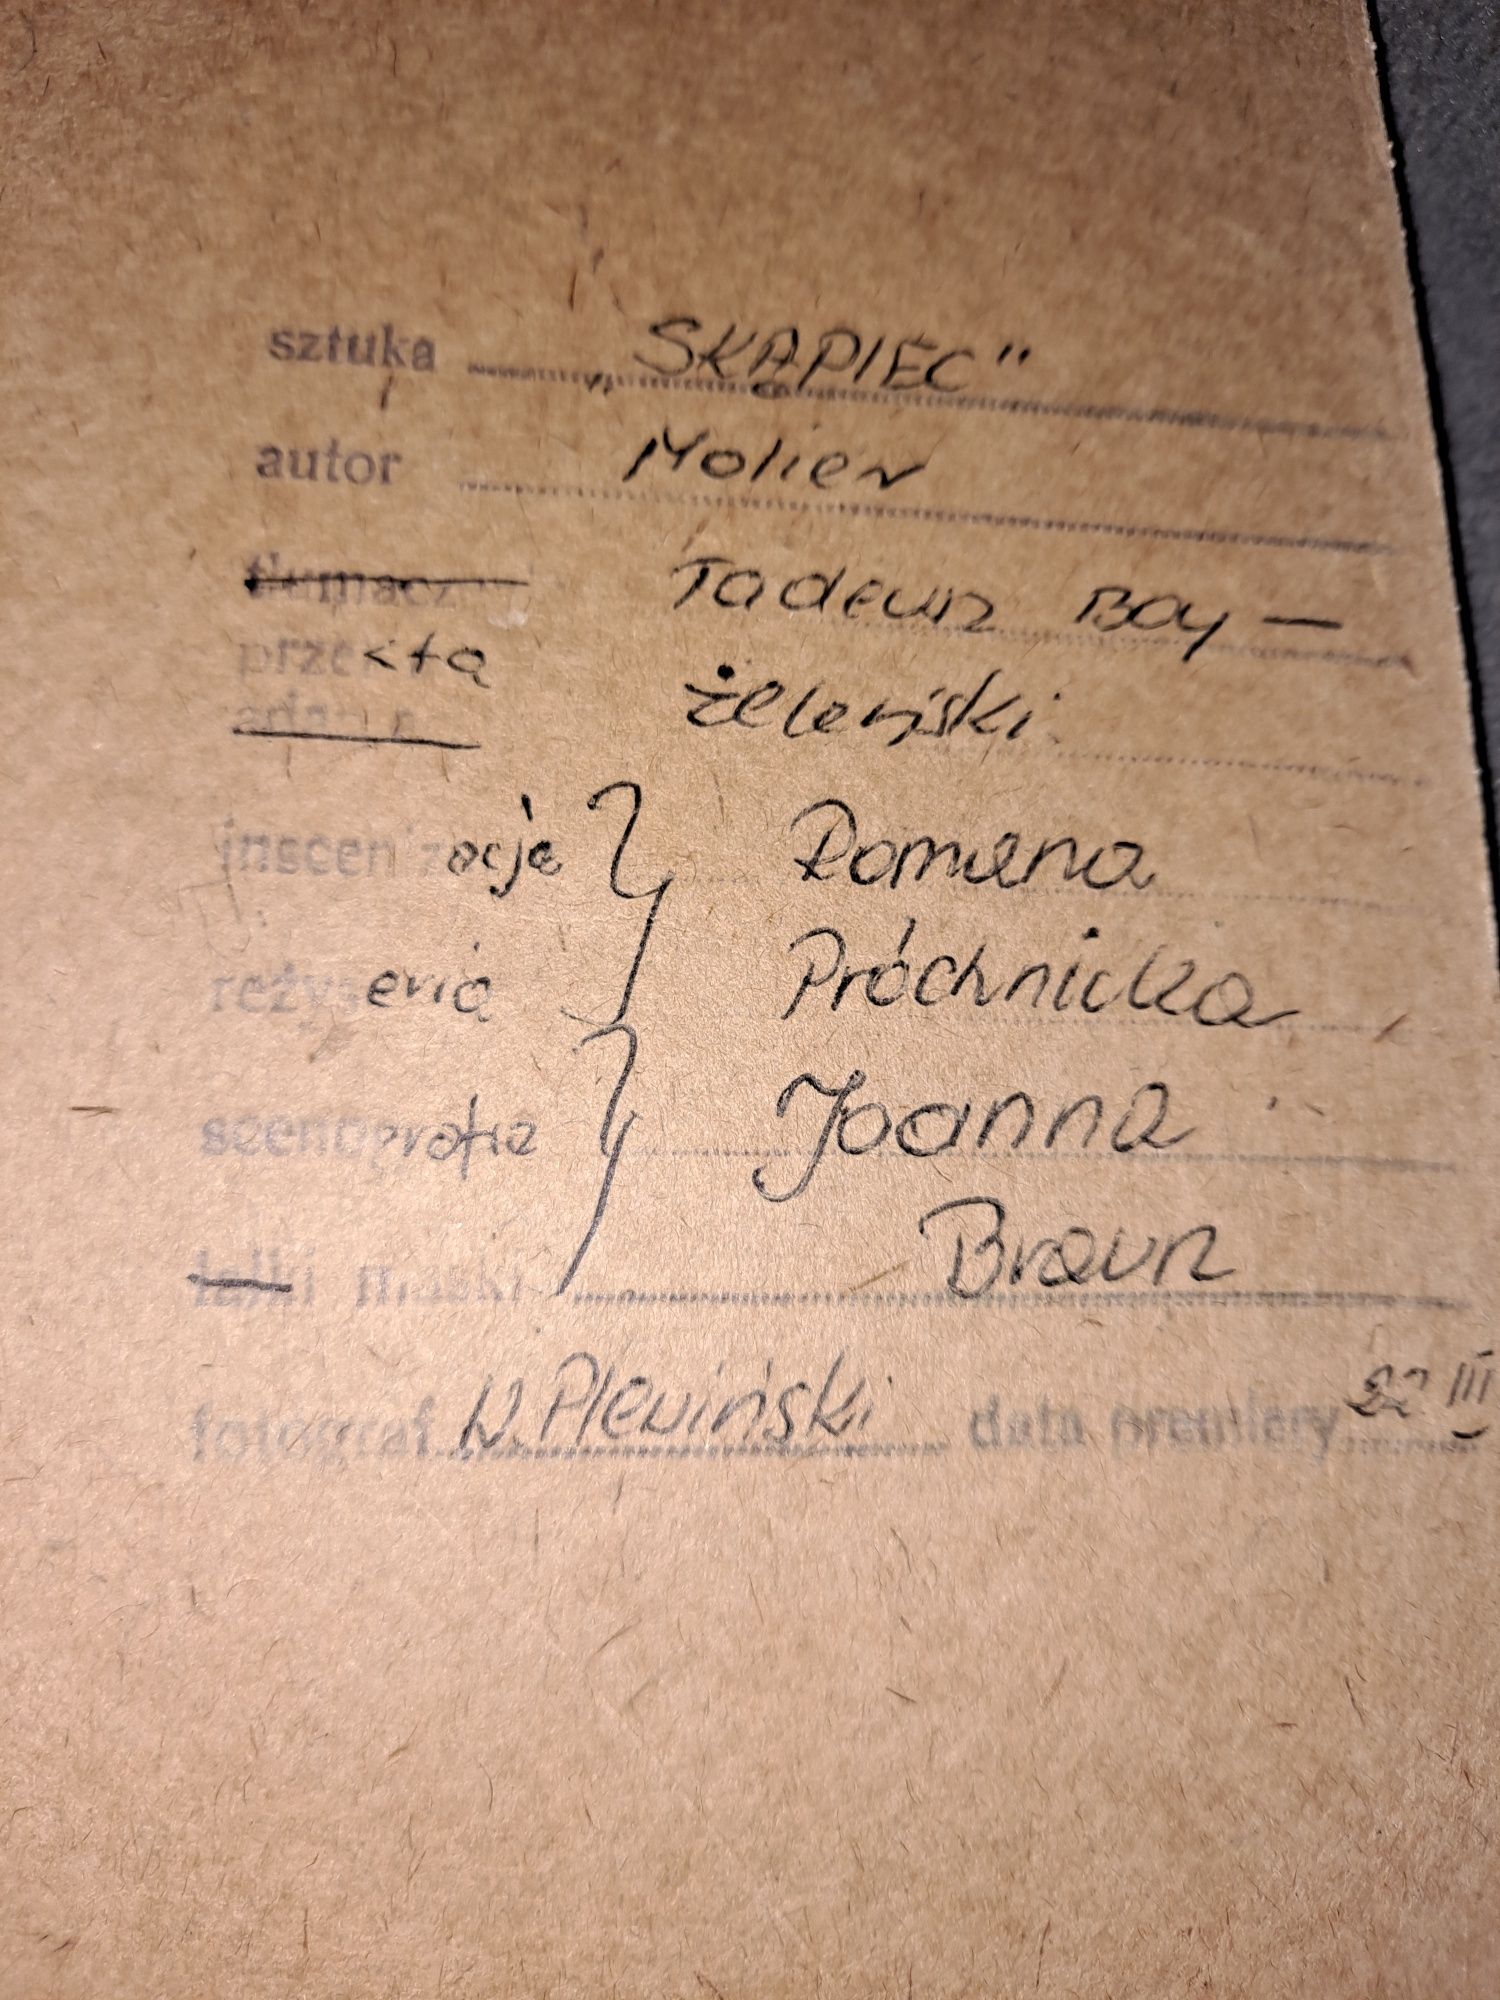 sztuka „SKĄPIEC"
autor Molier
tłumacz Tadeusz BOY —
przekłą
Żeleński
inscenizacja Romana
reżyseria Próchnicka
scenografia Joanna
lalki maski Braun
fotograf W. Plewiński data premiery 22 III